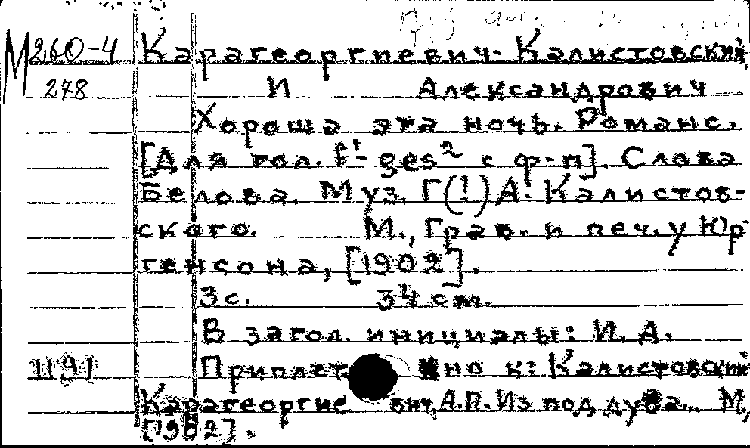 М 260-4 Карагеоргиевич-Калистовский,
278 И Александрович
Хороша эта ночь. Романс.
[Для гол. f¹- ges² с ф-п]. Слова
Белова. Муз. Г(!) А. Калистов-
ского. М., Грав. и печ. у Юр-
генсона, [1902].
3 с. 34 см.
В загол. инициалы: И. А.
1191 Приплет но к: Калистовский
Карагеоргие вич, А.П. Из под дуба... М,
[1902].